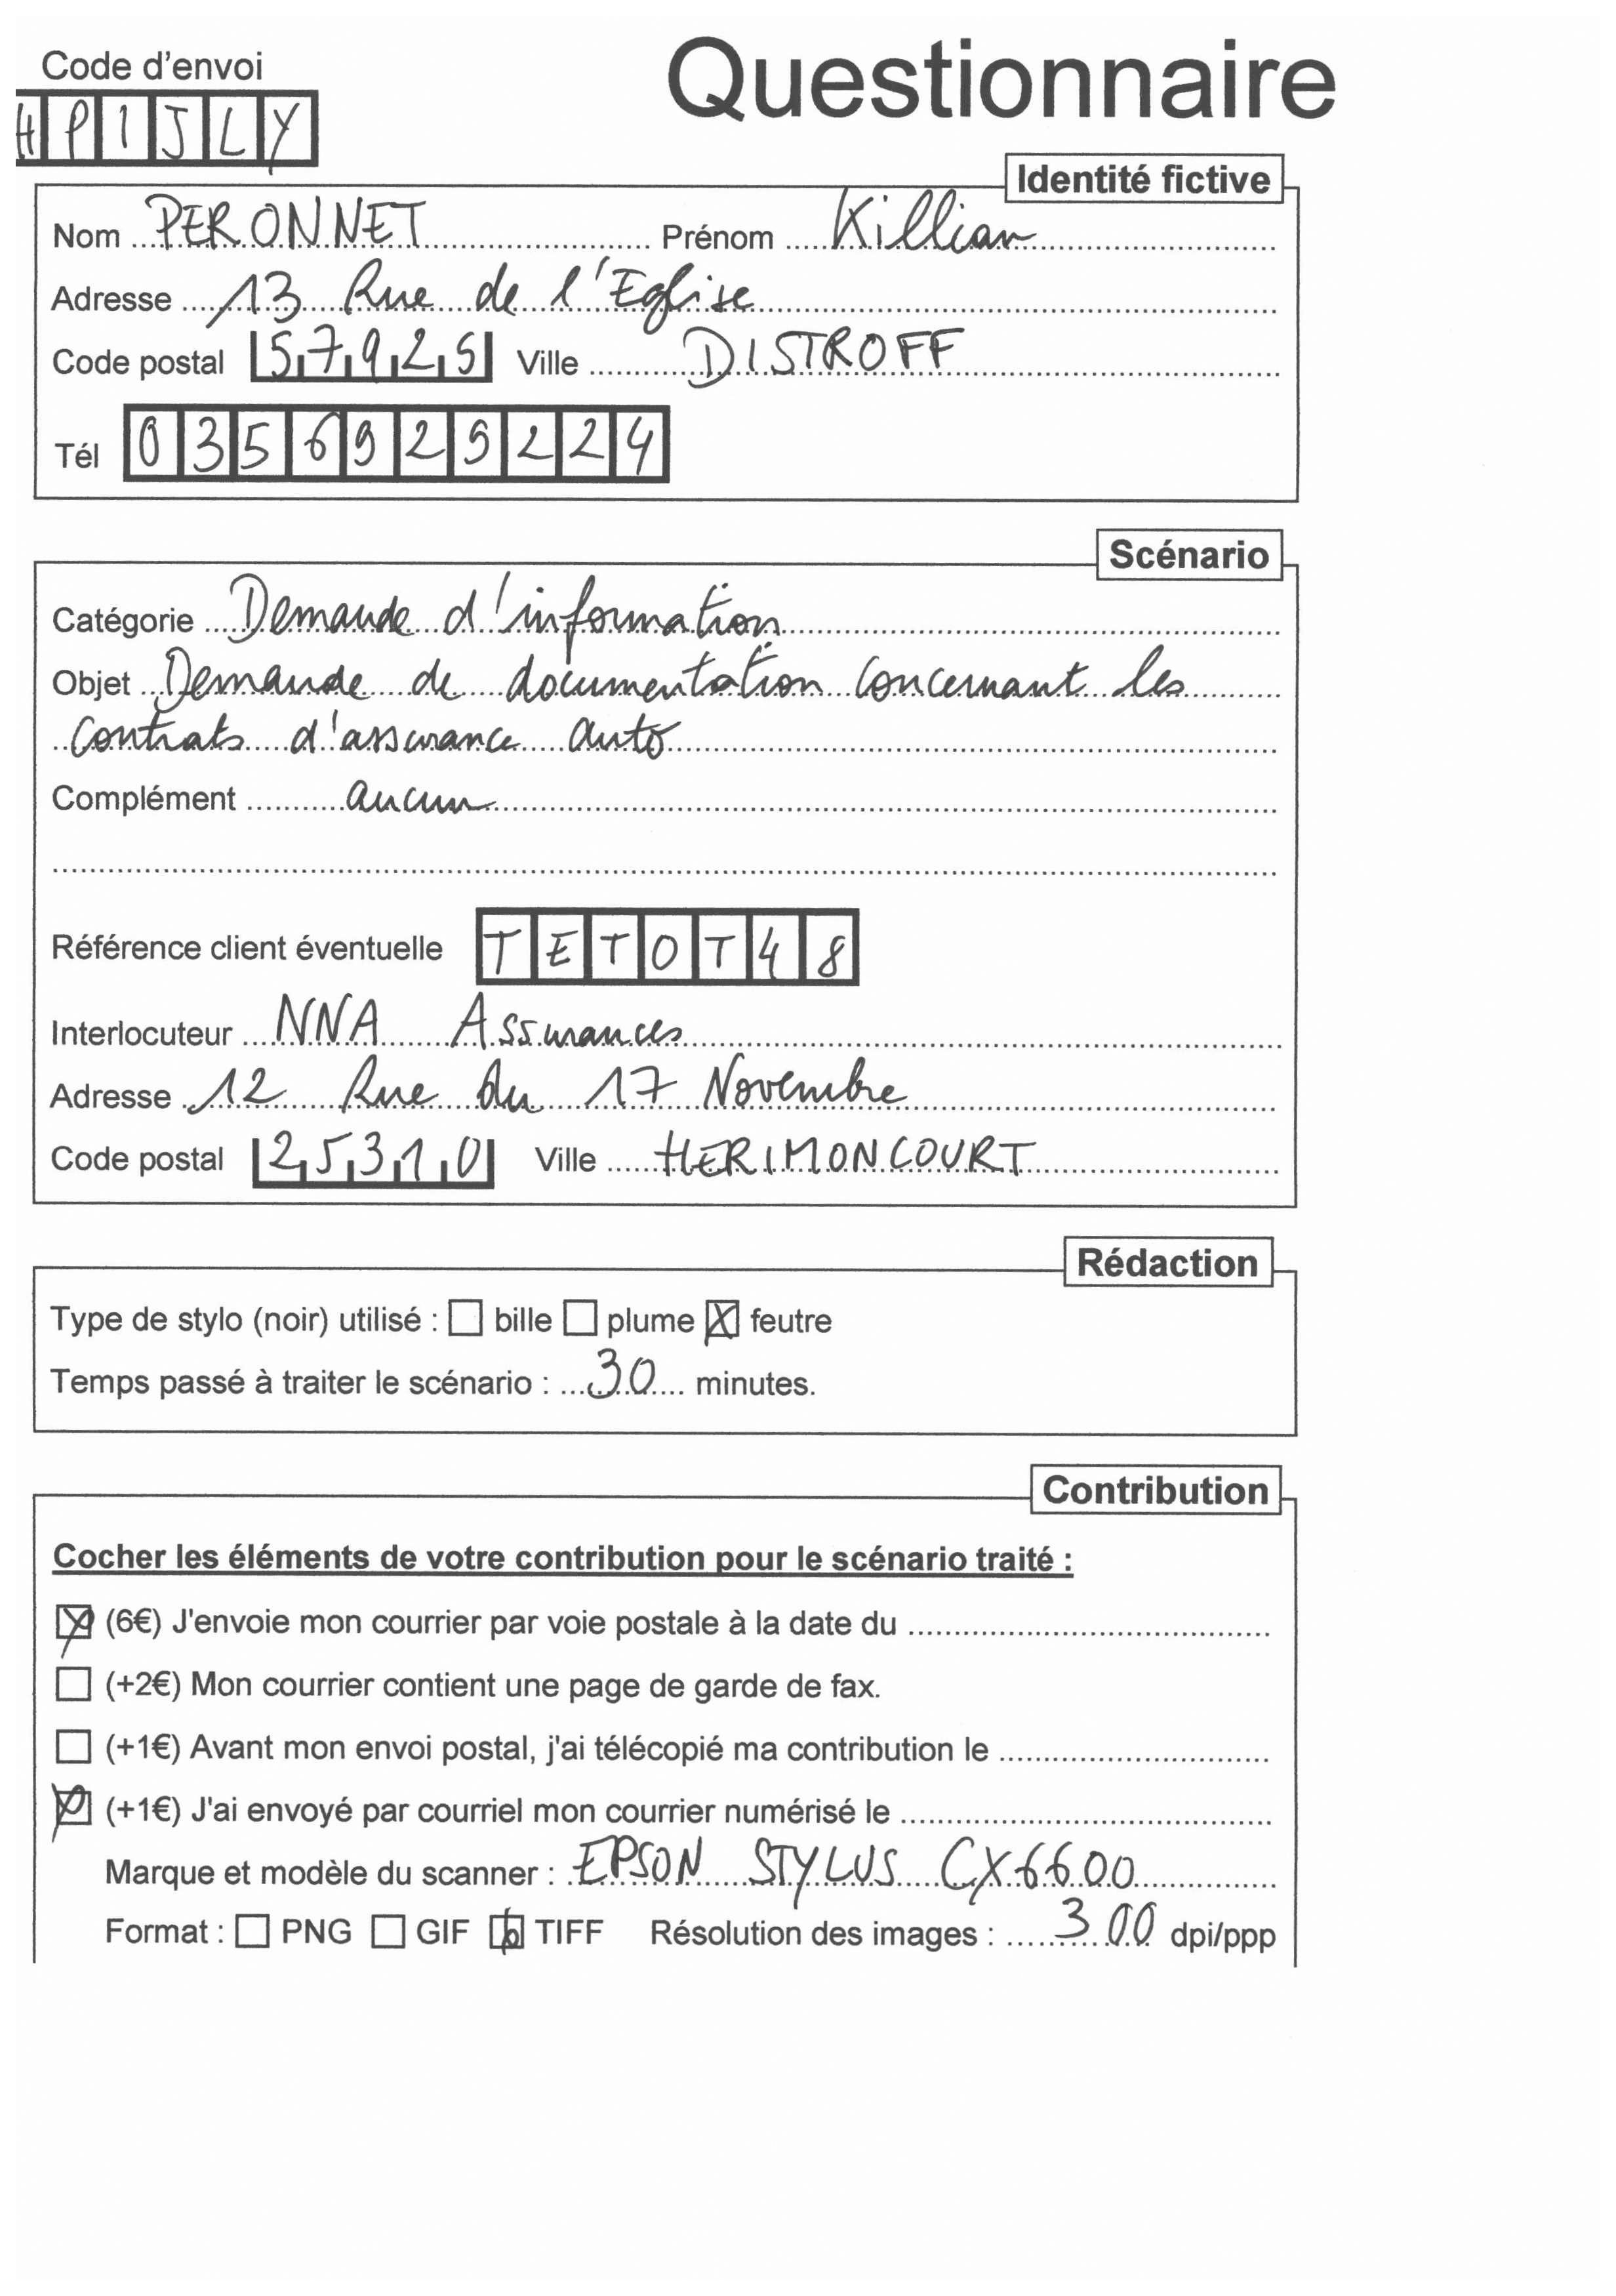 Code d'envoi
Questionnaire
H P I J L Y
Identité fictive
Nom PERONNET Prénom Killian
Adresse 13 Rue de l'Eglise
Code postal 57925 Ville DISTROFF
Tél 0356929224
Scénario
Catégorie Demande d'information
Objet Demande de documentation concernant les
contrats d'assurance auto
Complément aucun
Référence client éventuelle TETOT48
Interlocuteur NNA Assurances
Adresse 12 Rue du 17 Novembre
Code postal 25310 Ville HERIMONCOURT
Rédaction
Type de stylo (noir) utilisé : ☐ bille ☐ plume ☒ feutre
Temps passé à traiter le scénario : 30 minutes.
Contribution
Cocher les éléments de votre contribution pour le scénario traité :
☒ (6€) J'envoie mon courrier par voie postale à la date du
☐ (+2€) Mon courrier contient une page de garde de fax.
☐ (+1€) Avant mon envoi postal, j'ai télécopié ma contribution le
☒ (+1€) J'ai envoyé par courriel mon courrier numérisé le
Marque et modèle du scanner : EPSON STYLUS CX6600
Format : ☐ PNG ☐ GIF ☒ TIFF Résolution des images : 300 dpi/ppp